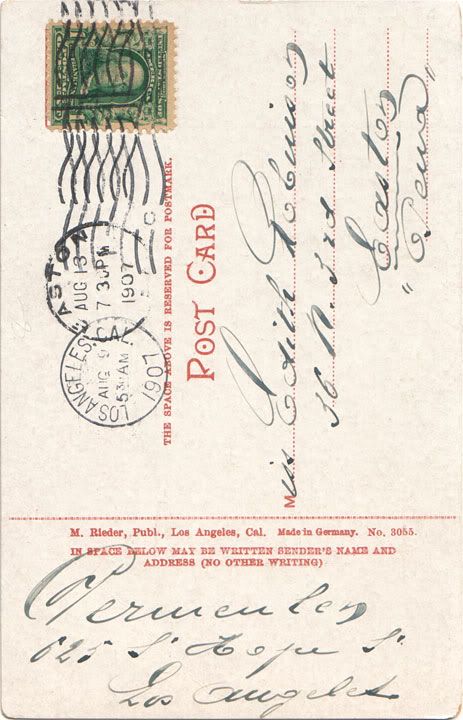 EASTON
AUG 13
7 30PM
1907
LOS ANGELES, CA
AUG 9
5 30AM
1907
THE SPACE ABOVE IS RESERVED FOR POSTMARK.
POST CARD
Miss Edith Robinson
36 N. 3rd Street
Easton
"Penna"
M. Rieder, Publ., Los Angeles, Cal. Made in Germany. No. 3055.
IN SPACE BELOW MAY BE WRITTEN SENDER'S NAME AND
ADDRESS (NO OTHER WRITING)
625 S' Hope St
Los Angeles